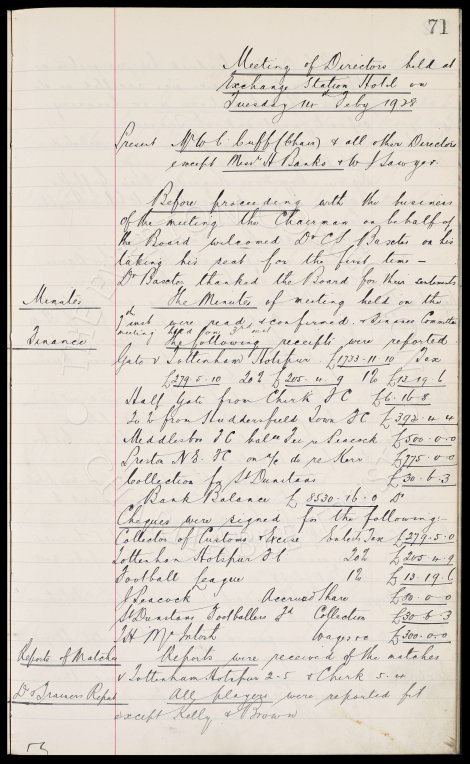 71
Meeting of Directors held at
Exchange Station Hotel on
Tuesday Feby 1928
Present Mr W C Cuff (Chair) & all other Directors
except Messrs A Banks & W J Sawyer.
Before proceeding with the business
of the meeting the Chairman on behalf of
the Board welcomed Dr C S Baxter on his
taking his seat for the first time –
Dr Baxter thanked the Board for their sentiments
Minutes
The Minutes of meeting held on the
7th inst were read & confirmed. & Finance Committee
meeting held on 3rd inst
Finance
The following receipts were reported.
Gate v Tottenham Hotspur £1733-11-10 Tax
£279.5.10 20% £205.4.9 1% £13.19.6
Half Gate from FC £6-16-8
20% from Huddersfield Town FC £392-4-4
Middlesbro FC balce Fee re Peacock £500-0-0
Preston N.E. FC on a/c do re Kerr £775-0-0
Collection for St Dunstans £30-6-3
Bank Balance £8530-16-0 Dr
Cheques were signed for the following:-
Collector of Customs & Excise balce Tax £279-5-0
Tottenham Hotspur FC 20% £205-4-9
Football League 1% £13.19.6
J Peacock Accrued Share £10-0-0
St Dunstans Footballers Fd Collection £30-6-3
H McIntosh Wages a/c £300-0-0
Reports of Matches
Reports were received of the matches
v Tottenham Hotspur 2-5 & 5-4
Dr & Trainers Report
All players were reported fit
except Kelly & Brown